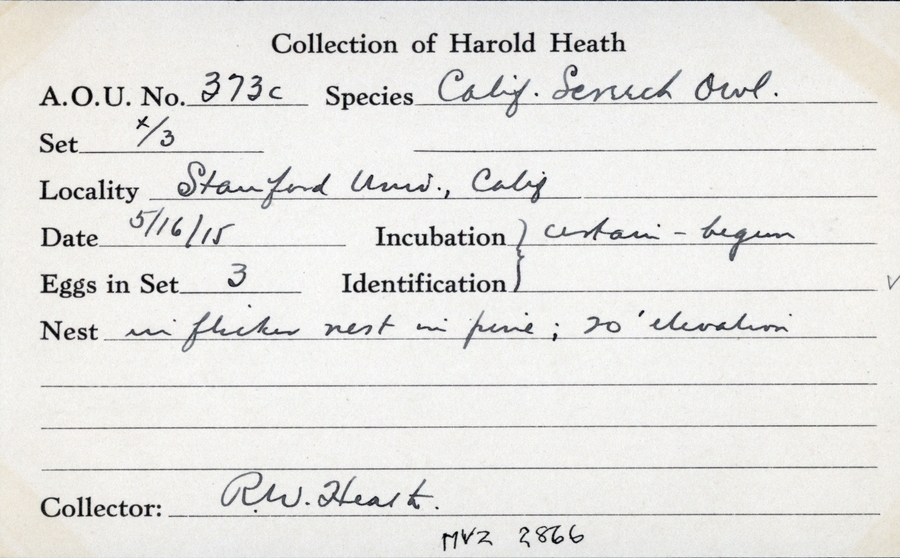 Collection of Harold Heath
A.O.U. No. 373c Species Calif. Screech Owl.
Set x/3
Locality Stanford Univ., Calif
Date 5/16/15 Incubation } certain - begun
Eggs in Set 3 Identification
Nest in flicker nest in pine; 20' elevation
Collector: R.W. Heath.
MVZ 2866